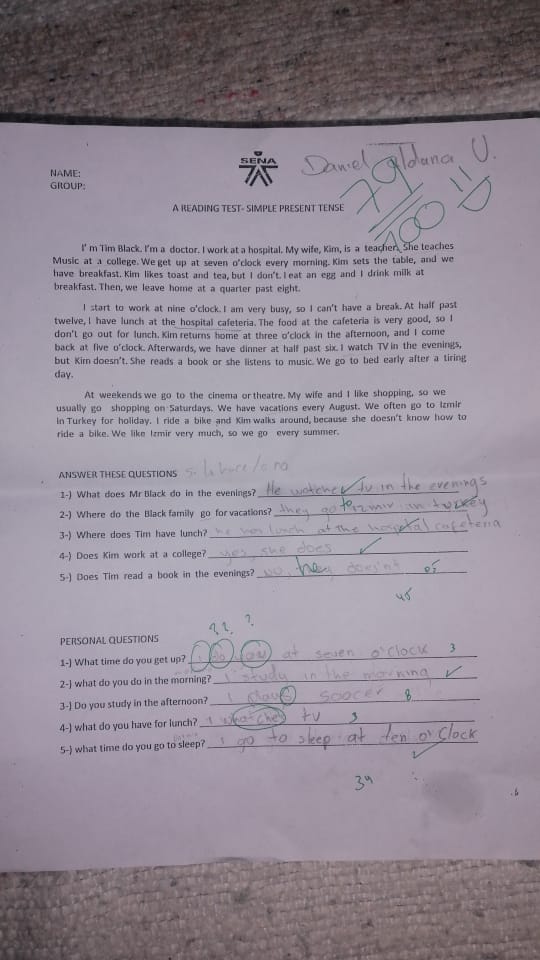 SENA
Daniel Aldana U.
NAME:
GROUP:
79
100
A READING TEST- SIMPLE PRESENT TENSE
I' m Tim Black. I'm a doctor. I work at a hospital. My wife, Kim, is a teacher. She teaches
Music at a college. We get up at seven o'clock every morning. Kim sets the table, and we
have breakfast. Kim likes toast and tea, but I don't. I eat an egg and I drink milk at
breakfast. Then, we leave home at a quarter past eight.
I start to work at nine o'clock. I am very busy, so I can't have a break. At half past
twelve, I have lunch at the hospital cafeteria. The food at the cafeteria is very good, so I
don't go out for lunch. Kim returns home at three o'clock in the afternoon, and I come
back at five o'clock. Afterwards, we have dinner at half past six. I watch TV in the evenings,
but Kim doesn't. She reads a book or she listens to music. We go to bed early after a tiring
day.
At weekends we go to the cinema or theatre. My wife and I like shopping, so we
usually go shopping on Saturdays. We have vacations every August. We often go to Izmir
in Turkey for holiday. I ride a bike and Kim walks around, because she doesn't know how to
ride a bike. We like Izmir very much, so we go every summer.
ANSWER THESE QUESTIONS
1-) What does Mr Black do in the evenings? He watches tv in the evenings
2-) Where do the Black family go for vacations? they go to izmir in turkey
3-) Where does Tim have lunch? he has lunch at the hospital cafeteria
4-) Does Kim work at a college? yes, she does
5-) Does Tim read a book in the evenings? no, he doesn't 05
45
?? ?
PERSONAL QUESTIONS
1-) What time do you get up? I do you at seven o'clock 3
2-) what do you do in the morning? I study in the morning
3-) Do you study in the afternoon? I plays soocer 8
4-) what do you have for lunch? I whatches tv 3
5-) what time do you go to sleep? I go to sleep at ten o'clock
34